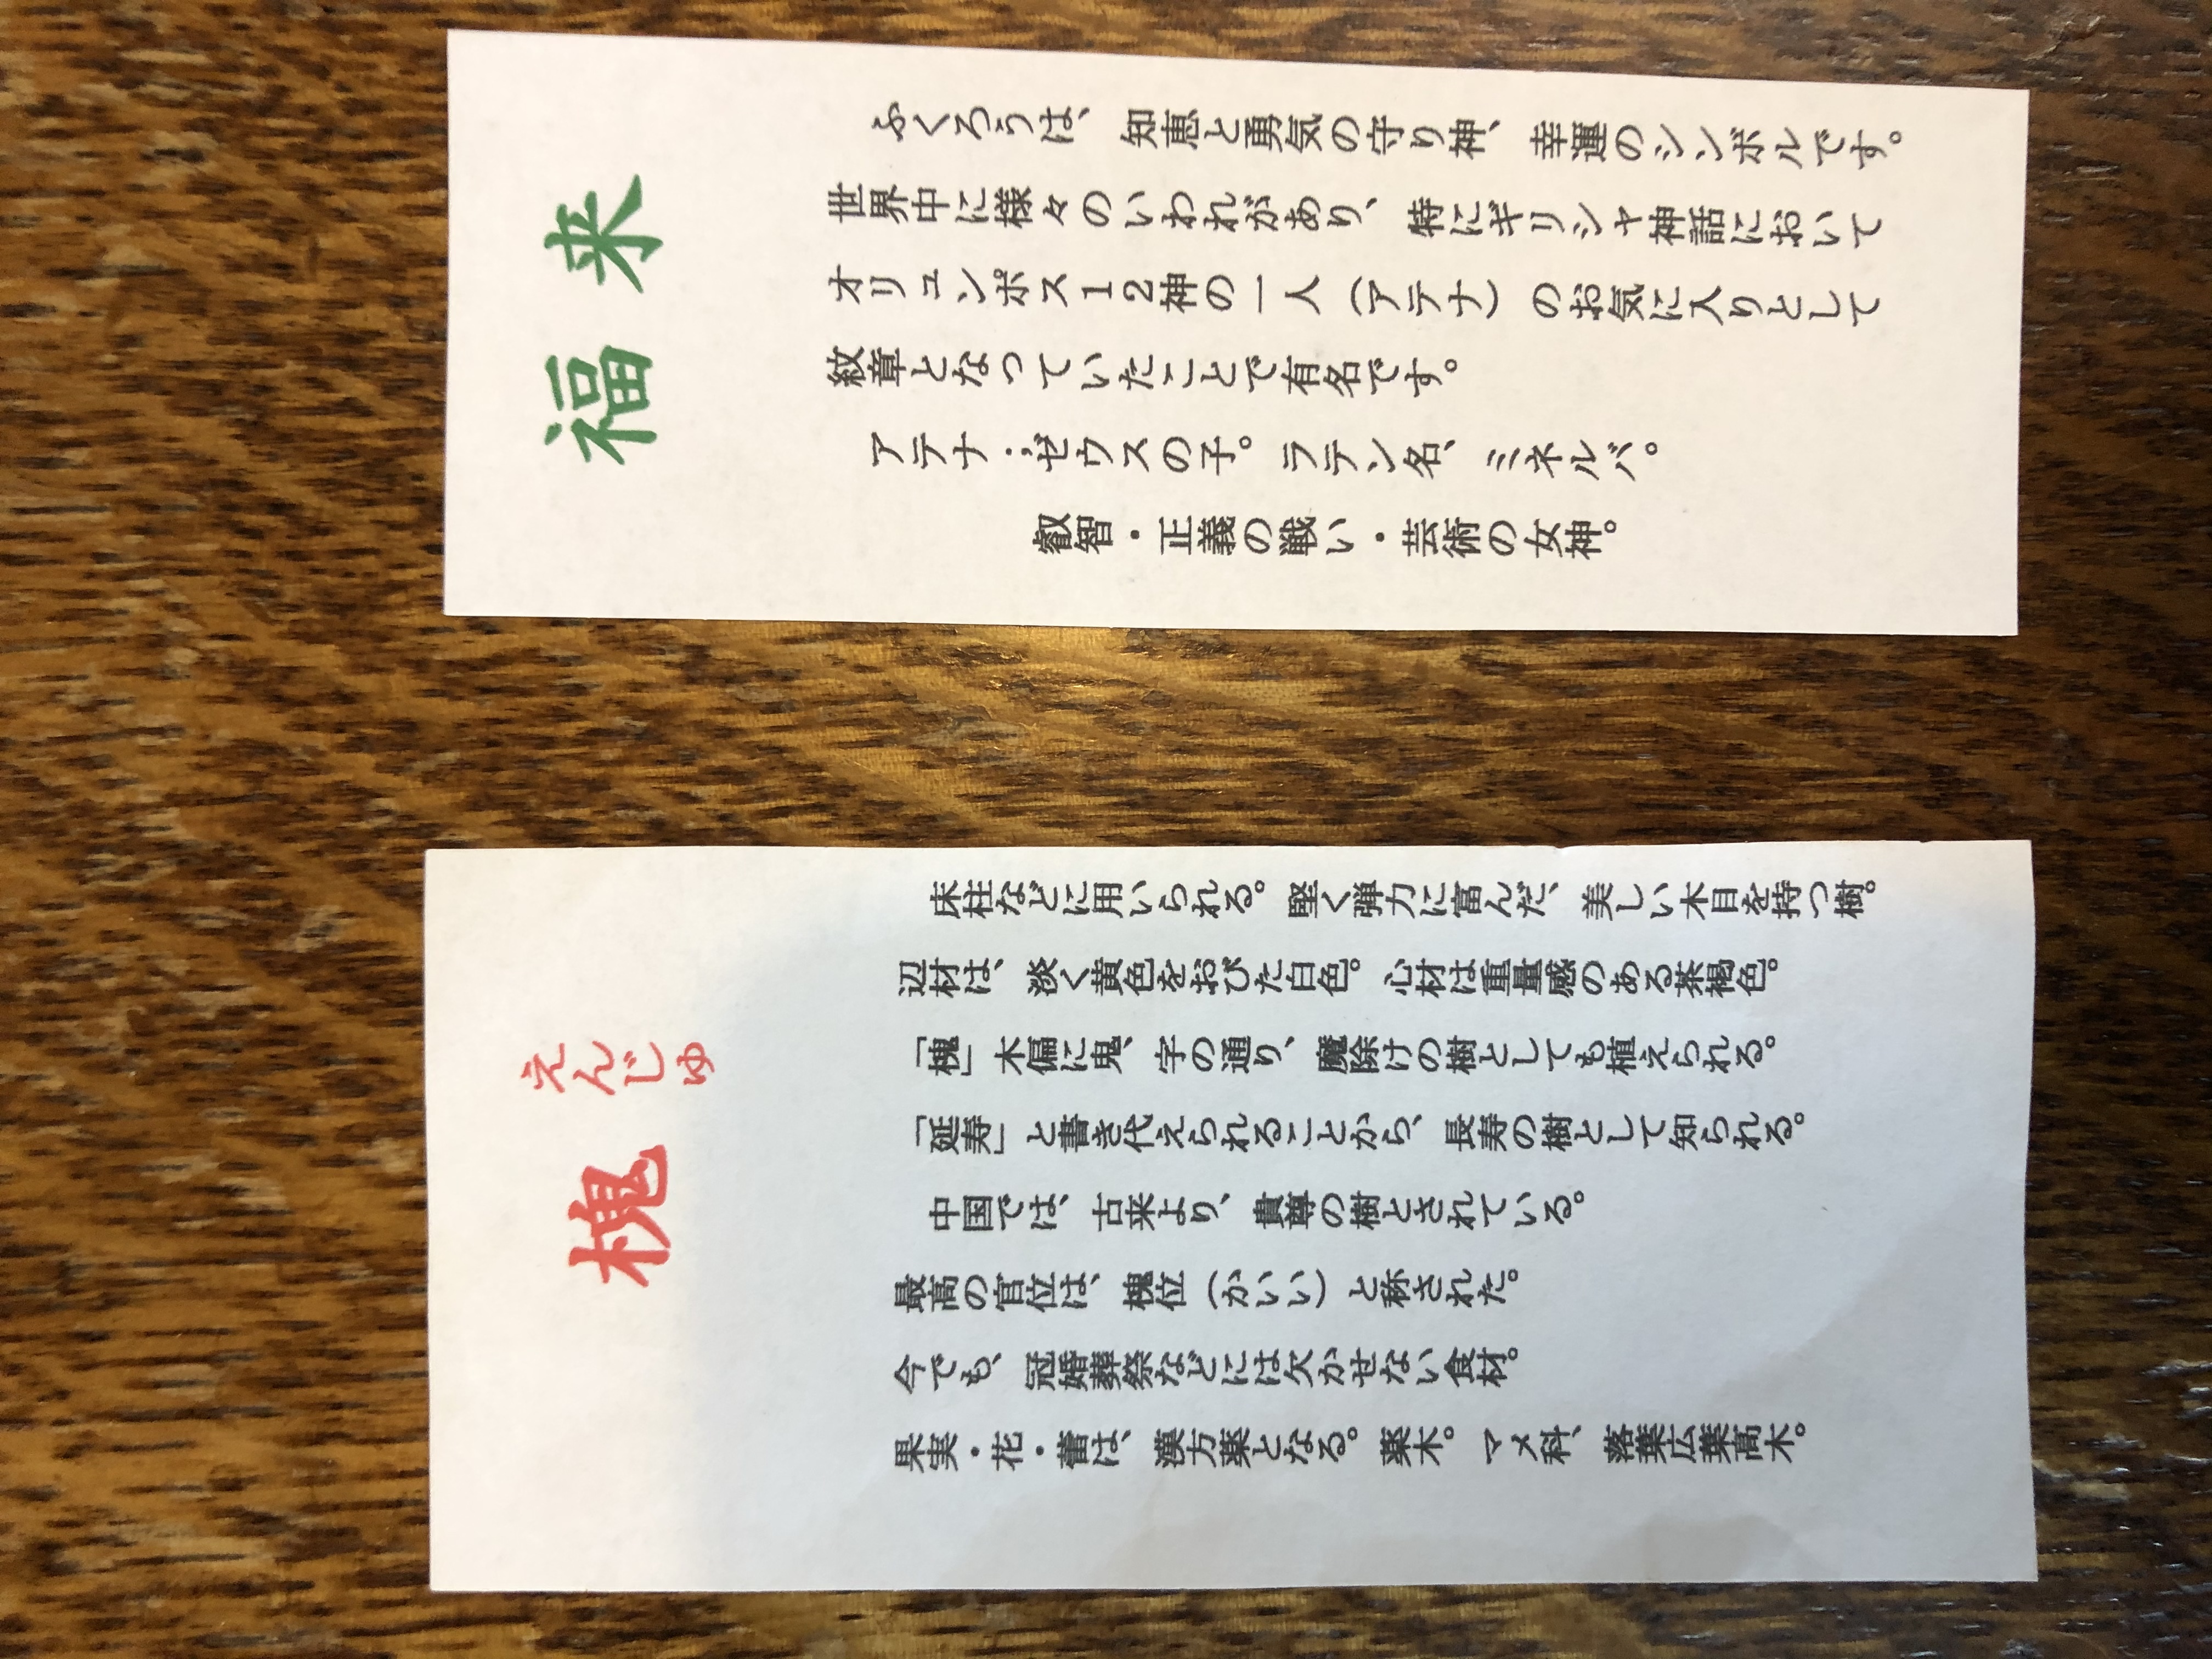 福来
ふくろうは、知恵と勇気の守り神、幸運のシンボルです。
世界中に様々のいわれがあり、特にギリシャ神話において
オリュンポス12神の一人（アテナ）のお気に入りとして
紋章となっていたことで有名です。
アテナ・ゼウスの子。ラテン名、ミネルバ。
叡智・正義の戦い・芸術の女神。
槐 えんじゅ
床柱などに用いられる。堅く弾力に富んだ、美しい木目を持つ樹。
辺材は、淡く黄色をおびた白色。心材は重量感のある茶褐色。
「槐」木偏に鬼、字の通り、魔除けの樹としても植えられる。
「延寿」と書き代えられることから、長寿の樹として知られる。
中国では、古来より、貴尊の樹とされている。
最高の官位は、槐位（かいい）と称された。
今でも、冠婚葬祭などには欠かせない食材。
果実・花・蕾は、漢方薬となる。薬木。マメ科、落葉広葉高木。